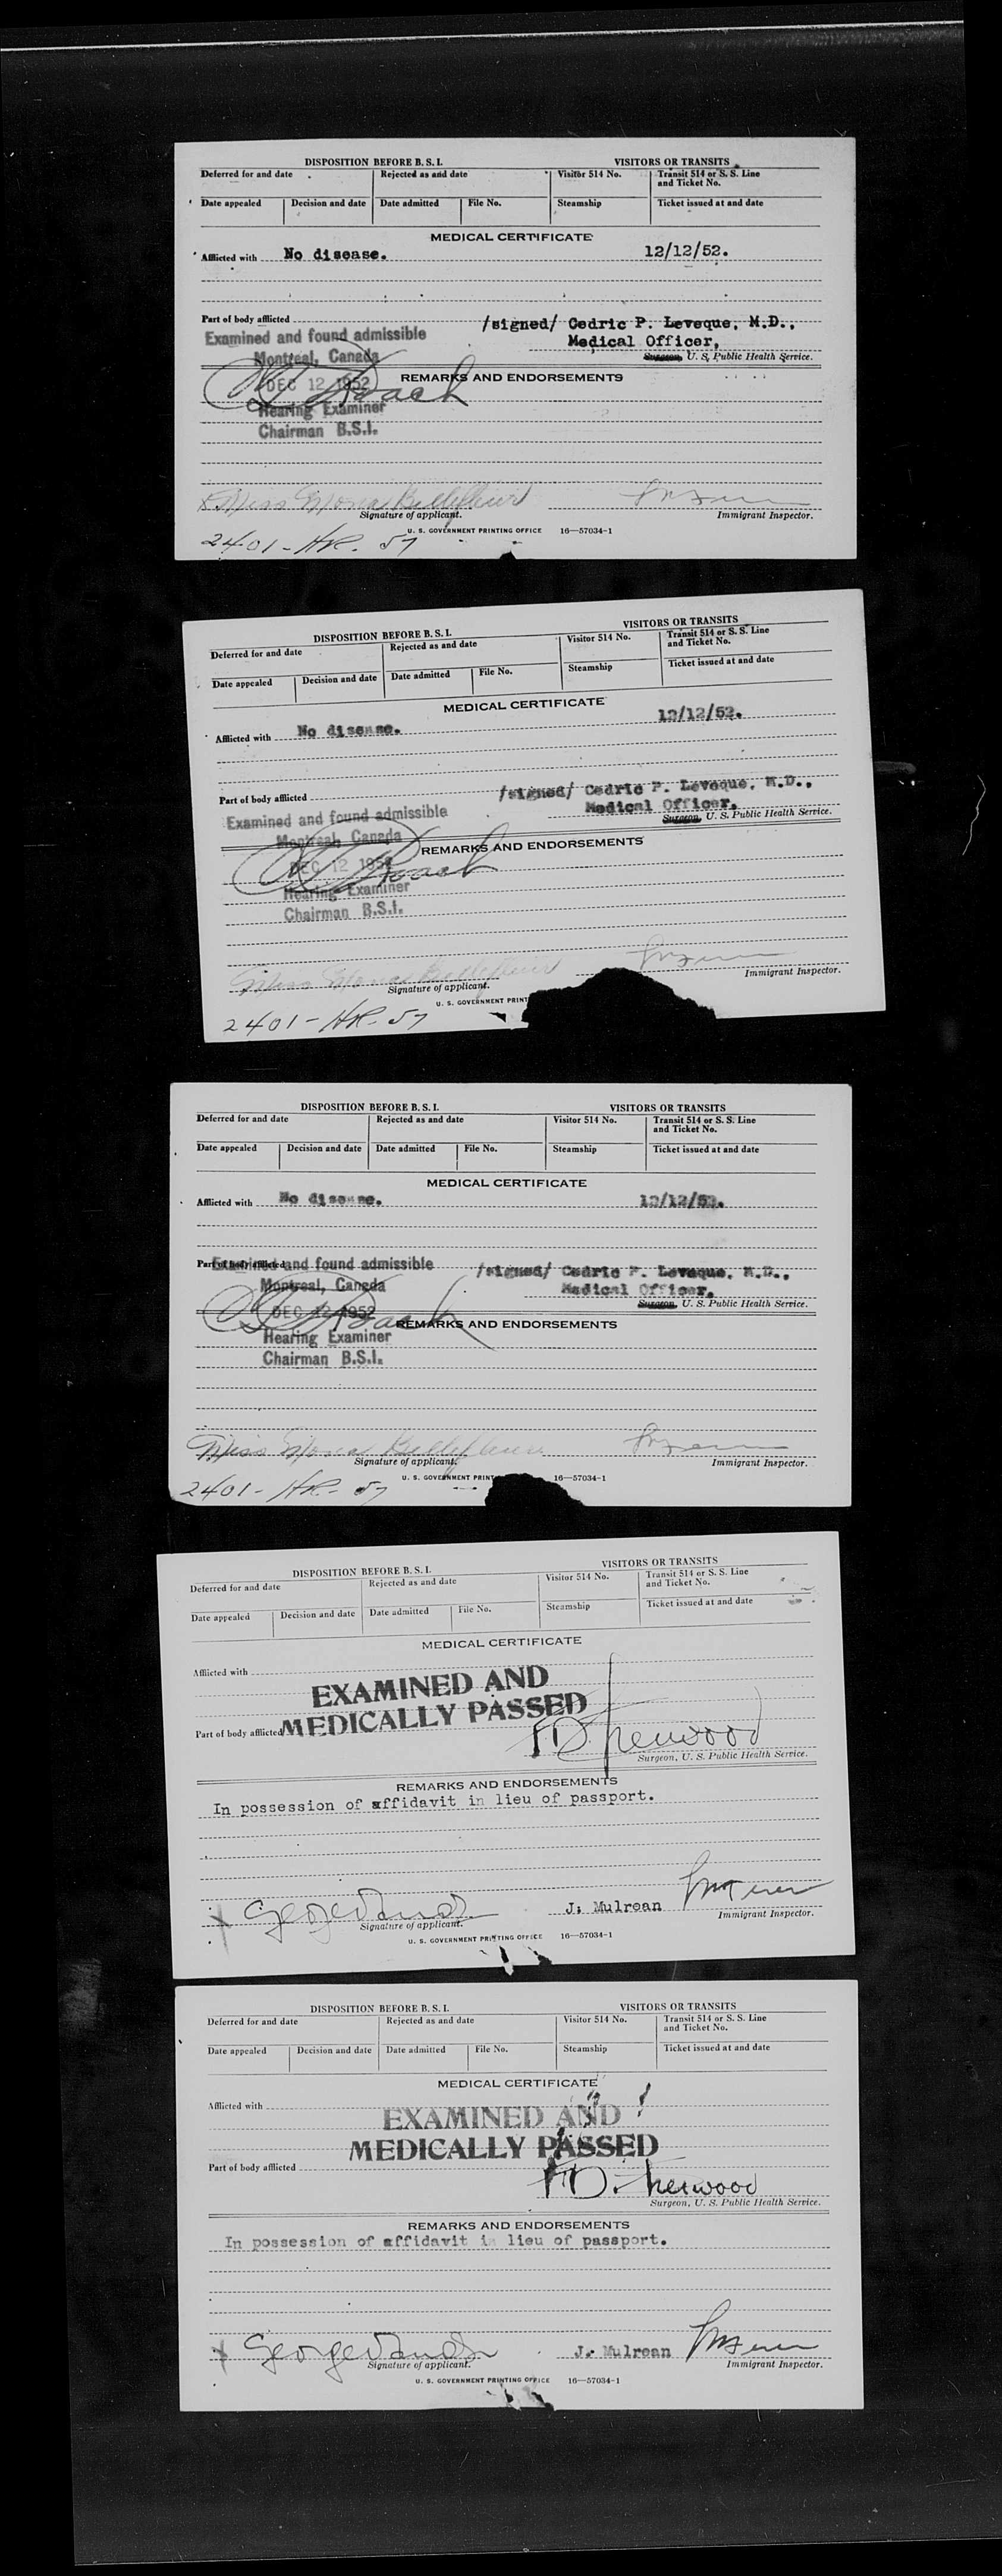 DISPOSITION BEFORE B. S. I. VISITORS OR TRANSITS
Deferred for and date Rejected as and date Visitor 514 No. Transit 514 or S. S. Line and Ticket No.
Date appealed Decision and date Date admitted File No. Steamship Ticket issued at and date
MEDICAL CERTIFICATE
Afflicted with No disease. 12/12/52.
Part of body afflicted
Examined and found admissible /signed/ Cedric P. Leveque, M.D.,
Montreal, Canada Medical Officer,
Surgeon, U. S. Public Health Service.
DEC 12 1952 REMARKS AND ENDORSEMENTS
Roach
Hearing Examiner
Chairman B.S.I.
Miss Mona Bellefleur
Signature of applicant. Immigrant Inspector.
U. S. GOVERNMENT PRINTING OFFICE 16—57034-1
2401-HR. 57
DISPOSITION BEFORE B. S. I. VISITORS OR TRANSITS
Deferred for and date Rejected as and date Visitor 514 No. Transit 514 or S. S. Line and Ticket No.
Date appealed Decision and date Date admitted File No. Steamship Ticket issued at and date
MEDICAL CERTIFICATE
Afflicted with No disease. 12/12/52.
Part of body afflicted
Examined and found admissible /signed/ Cedric P. Leveque, M.D.,
Montreal, Canada Medical Officer,
Surgeon, U. S. Public Health Service.
DEC 12 1952 REMARKS AND ENDORSEMENTS
Roach
Hearing Examiner
Chairman B.S.I.
Miss Mona Bellefleur
Signature of applicant. Immigrant Inspector.
U. S. GOVERNMENT PRINT
2401-HR-57
DISPOSITION BEFORE B. S. I. VISITORS OR TRANSITS
Deferred for and date Rejected as and date Visitor 514 No. Transit 514 or S. S. Line and Ticket No.
Date appealed Decision and date Date admitted File No. Steamship Ticket issued at and date
MEDICAL CERTIFICATE
Afflicted with No disease. 12/12/52.
Part of body afflicted
Examined and found admissible /signed/ Cedric P. Leveque, M.D.,
Montreal, Canada Medical Officer,
Surgeon, U. S. Public Health Service.
DEC 12 1952 REMARKS AND ENDORSEMENTS
Roach
Hearing Examiner
Chairman B.S.I.
Miss Mona Bellefleur
Signature of applicant. Immigrant Inspector.
U. S. GOVERNMENT PRINT 16—57034-1
2401-HR-57
DISPOSITION BEFORE B. S. I. VISITORS OR TRANSITS
Deferred for and date Rejected as and date Visitor 514 No. Transit 514 or S. S. Line and Ticket No.
Date appealed Decision and date Date admitted File No. Steamship Ticket issued at and date
MEDICAL CERTIFICATE
Afflicted with
EXAMINED AND
Part of body afflicted MEDICALLY PASSED
Surgeon, U. S. Public Health Service.
REMARKS AND ENDORSEMENTS
In possession of affidavit in lieu of passport.
J. Mulrean
Signature of applicant. Immigrant Inspector.
U. S. GOVERNMENT PRINTING OFFICE 16—57034-1
DISPOSITION BEFORE B. S. I. VISITORS OR TRANSITS
Deferred for and date Rejected as and date Visitor 514 No. Transit 514 or S. S. Line and Ticket No.
Date appealed Decision and date Date admitted File No. Steamship Ticket issued at and date
MEDICAL CERTIFICATE
Afflicted with
EXAMINED AND
MEDICALLY PASSED
Part of body afflicted
Surgeon, U. S. Public Health Service.
REMARKS AND ENDORSEMENTS
In possession of affidavit in lieu of passport.
J. Mulrean
Signature of applicant. Immigrant Inspector.
U. S. GOVERNMENT PRINTING OFFICE 16—57034-1